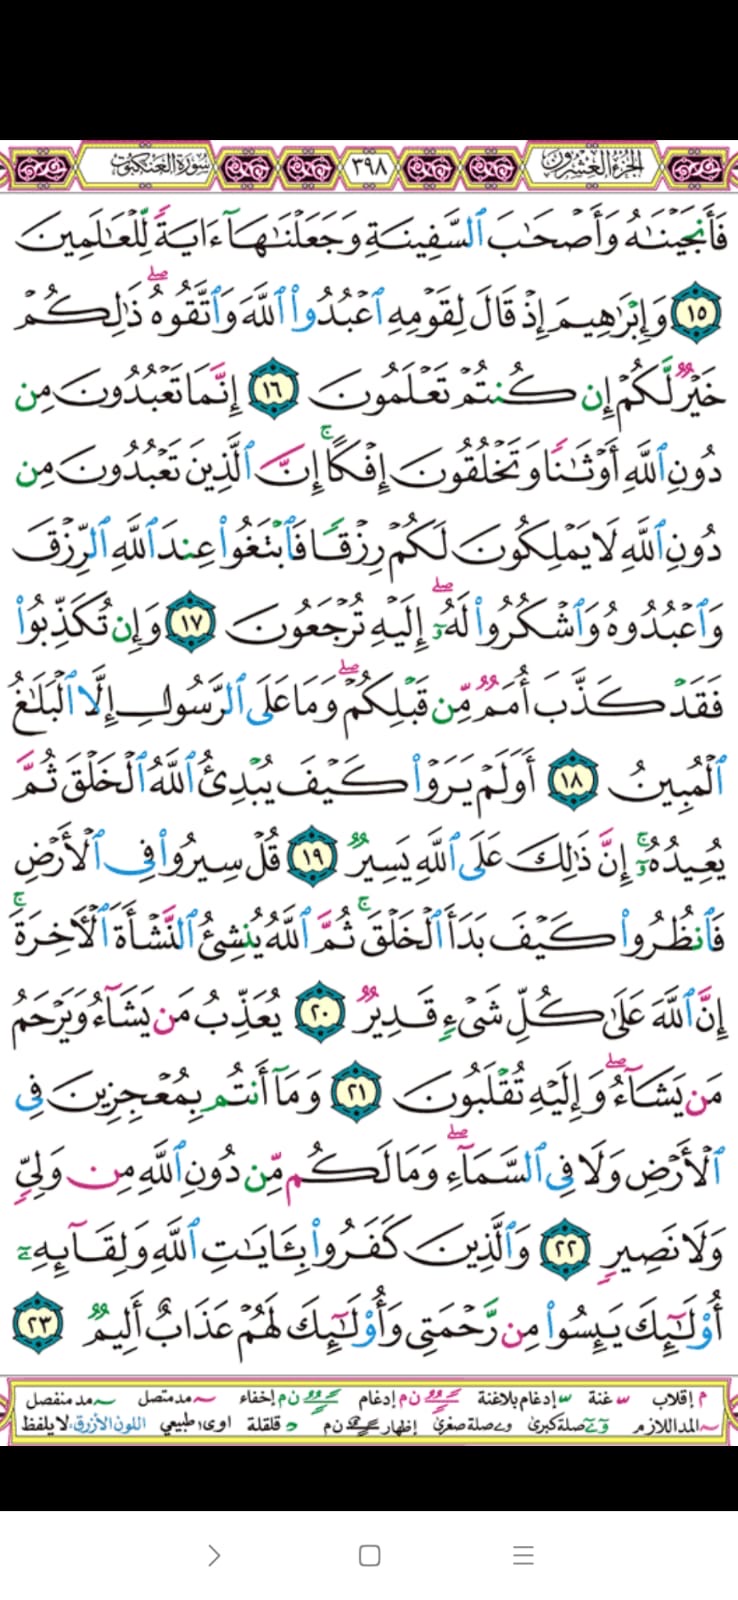 الجزء العشرون ٣٩٨ سورة العنكبوت
فَأَنجَيْنَٰهُ وَأَصْحَٰبَ ٱلسَّفِينَةِ وَجَعَلْنَٰهَآ ءَايَةً لِّلْعَٰلَمِينَ
١٥ وَإِبْرَٰهِيمَ إِذْ قَالَ لِقَوْمِهِ ٱعْبُدُوا۟ ٱللَّهَ وَٱتَّقُوهُ ۖ ذَٰلِكُمْ
خَيْرٌ لَّكُمْ إِن كُنتُمْ تَعْلَمُونَ ١٦ إِنَّمَا تَعْبُدُونَ مِن
دُونِ ٱللَّهِ أَوْثَٰنًا وَتَخْلُقُونَ إِفْكًا ۚ إِنَّ ٱلَّذِينَ تَعْبُدُونَ مِن
دُونِ ٱللَّهِ لَا يَمْلِكُونَ لَكُمْ رِزْقًا فَٱبْتَغُوا۟ عِندَ ٱللَّهِ ٱلرِّزْقَ
وَٱعْبُدُوهُ وَٱشْكُرُوا۟ لَهُۥٓ ۖ إِلَيْهِ تُرْجَعُونَ ١٧ وَإِن تُكَذِّبُوا۟
فَقَدْ كَذَّبَ أُمَمٌ مِّن قَبْلِكُمْ ۖ وَمَا عَلَى ٱلرَّسُولِ إِلَّا ٱلْبَلَٰغُ
ٱلْمُبِينُ ١٨ أَوَلَمْ يَرَوْا۟ كَيْفَ يُبْدِئُ ٱللَّهُ ٱلْخَلْقَ ثُمَّ
يُعِيدُهُۥٓ ۚ إِنَّ ذَٰلِكَ عَلَى ٱللَّهِ يَسِيرٌ ١٩ قُلْ سِيرُوا۟ فِى ٱلْأَرْضِ
فَٱنظُرُوا۟ كَيْفَ بَدَأَ ٱلْخَلْقَ ۚ ثُمَّ ٱللَّهُ يُنشِئُ ٱلنَّشْأَةَ ٱلْءَاخِرَةَ ۚ
إِنَّ ٱللَّهَ عَلَىٰ كُلِّ شَىْءٍ قَدِيرٌ ٢٠ يُعَذِّبُ مَن يَشَآءُ وَيَرْحَمُ
مَن يَشَآءُ ۖ وَإِلَيْهِ تُقْلَبُونَ ٢١ وَمَآ أَنتُم بِمُعْجِزِينَ فِى
ٱلْأَرْضِ وَلَا فِى ٱلسَّمَآءِ ۖ وَمَا لَكُم مِّن دُونِ ٱللَّهِ مِن وَلِىٍّ
وَلَا نَصِيرٍ ٢٢ وَٱلَّذِينَ كَفَرُوا۟ بِـَٔايَٰتِ ٱللَّهِ وَلِقَآئِهِۦٓ
أُو۟لَٰٓئِكَ يَئِسُوا۟ مِن رَّحْمَتِى وَأُو۟لَٰٓئِكَ لَهُمْ عَذَابٌ أَلِيمٌ ٢٣
م إقلاب غنة إدغام بلاغنة ن م إدغام ن م إخفاء مد متصل مد منفصل
المد اللازم صلة كبرى صلة صغرى إظهار ن م قلقلة اوى طبيعي اللون الأزرق: لا يلفظ